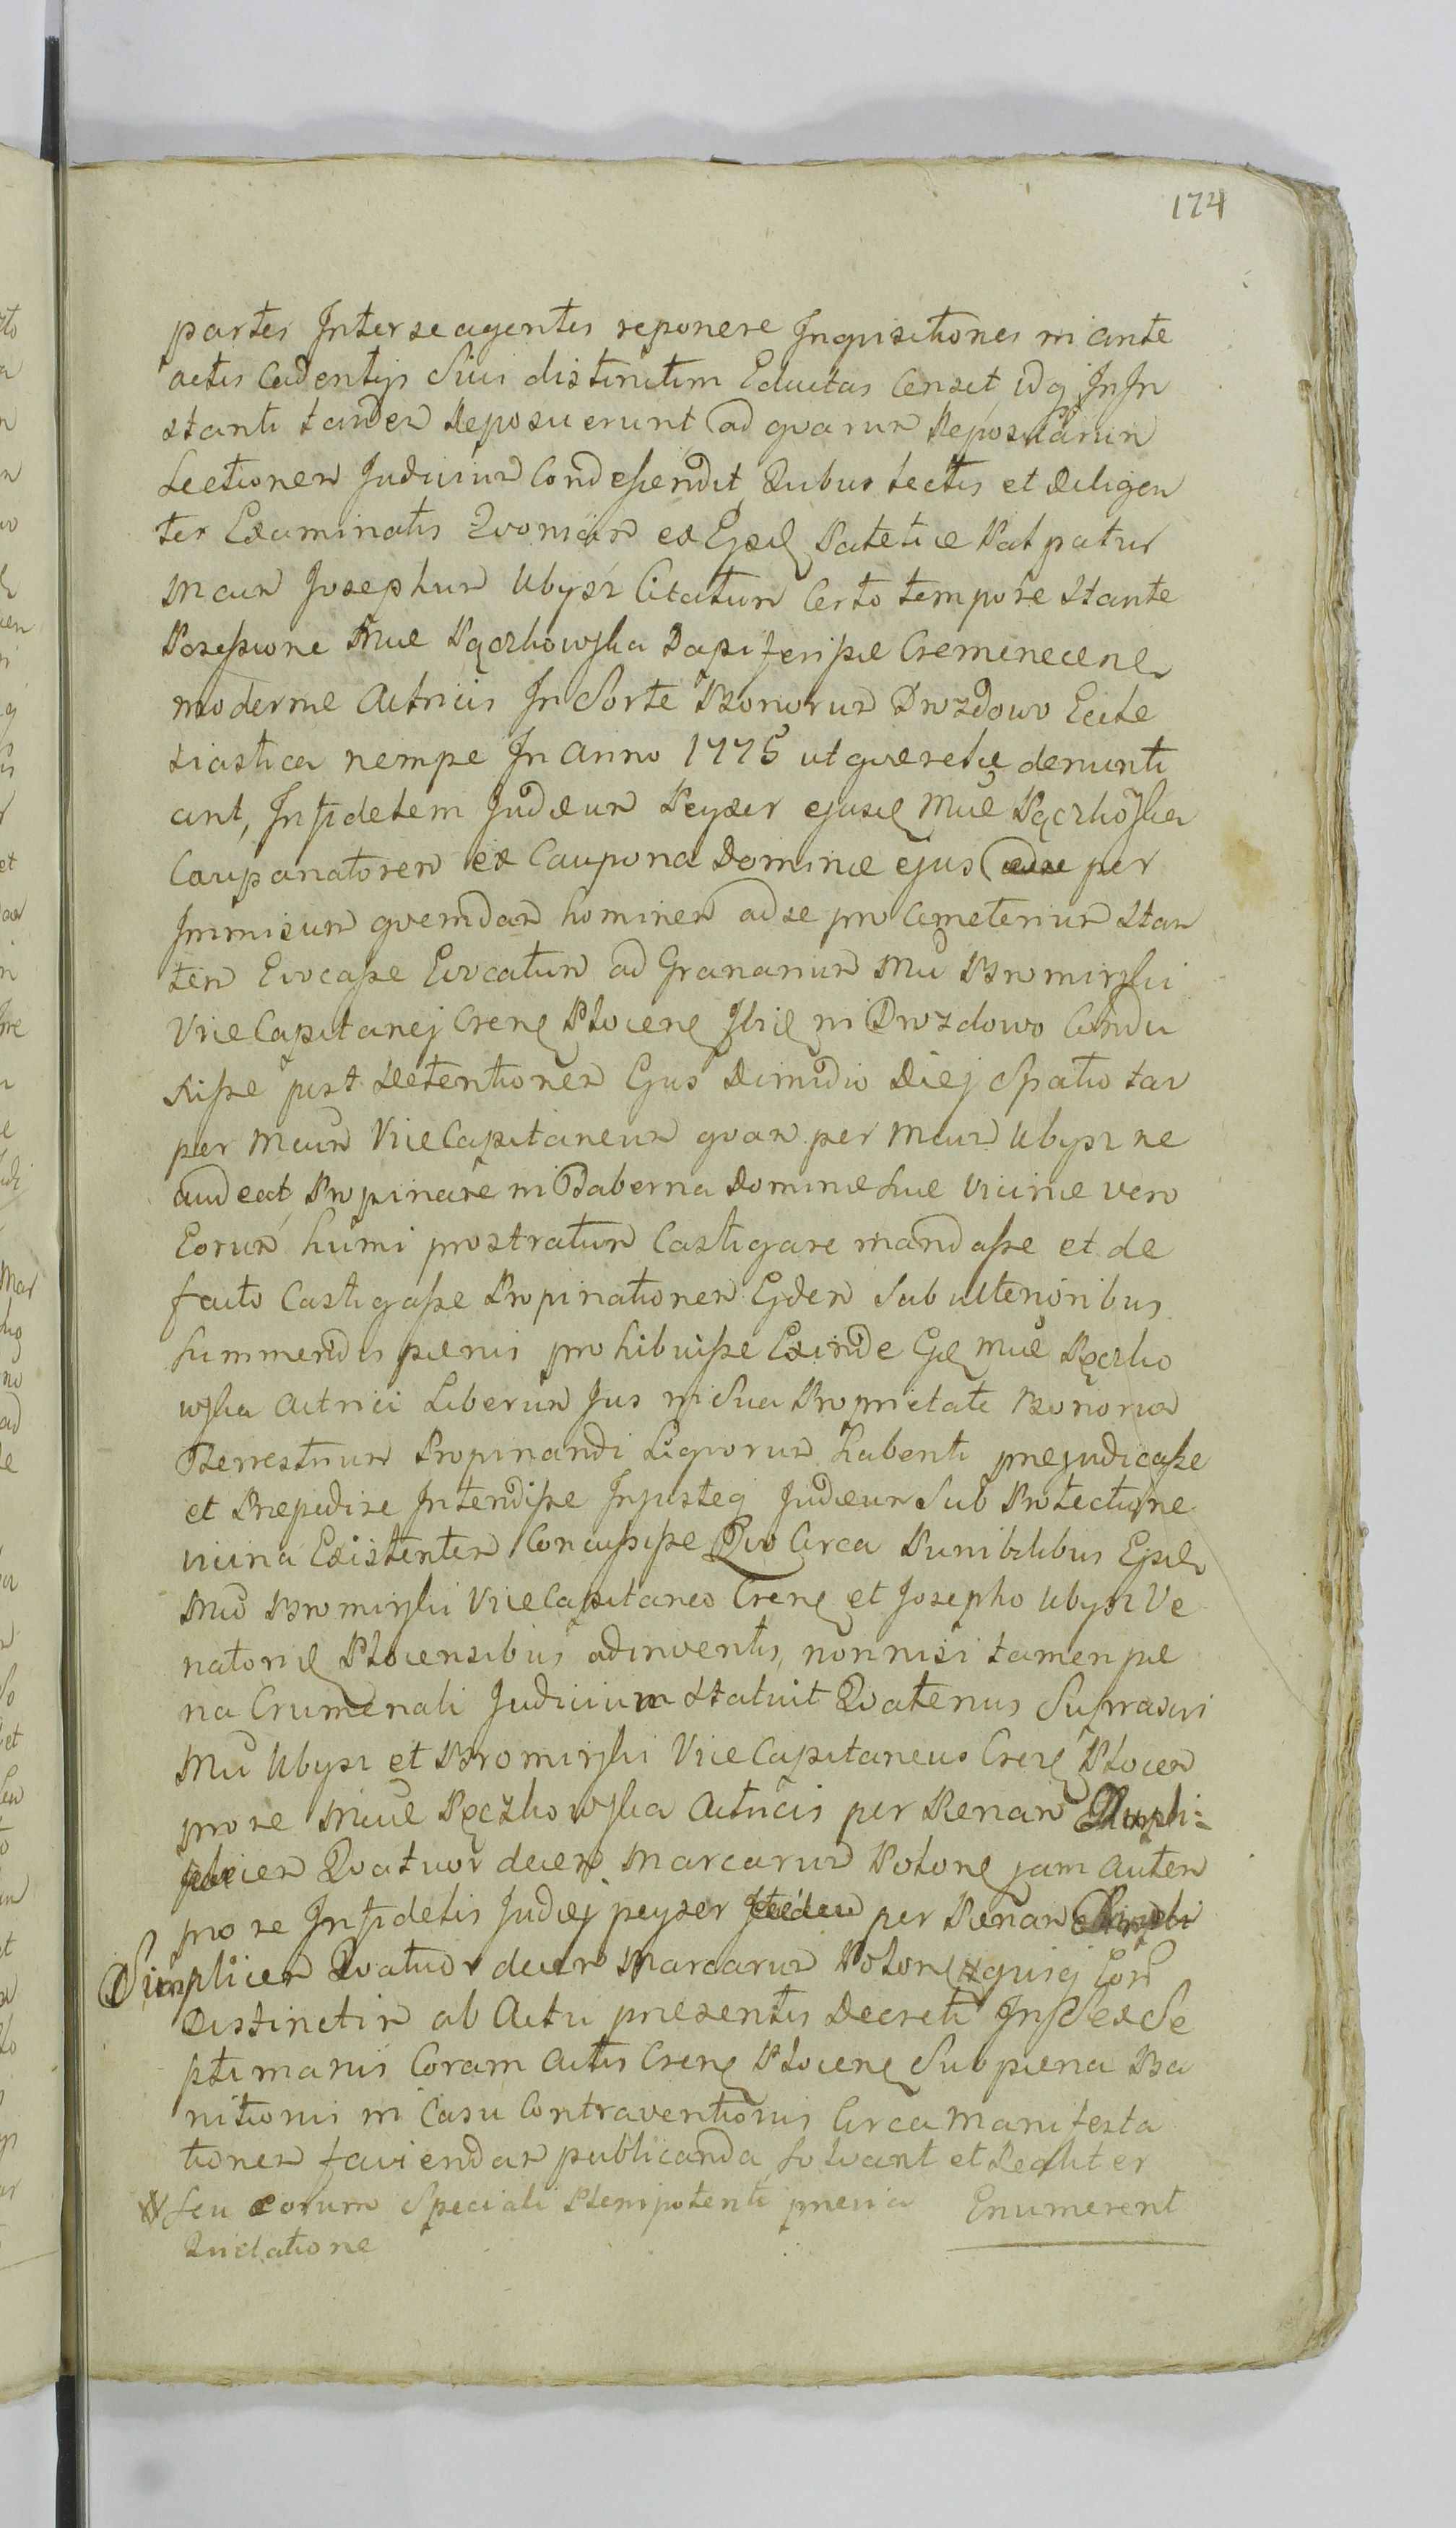 174
partes Inter se agentes reponere Inquisitiones in ante
actis Cadentijs Suis distinctim Eductas Censet, idq In In
stanti tandem Reposuerunt ad qvarum Repositarum
Lectionem Judicium Condescendit, Quibus lectis et Diligen
ter Examinatis Qvoniam ex Patet
Mcum Josephum Ubysz Citatum Certo tempore Stante
Possessione Mcae Pączkowska Dapiferissae Cremenecen
modernae Actricis In Sorte Bonorum Drozdowo Eccle
siastica nempe In Anno 1775 ut qverelae denunti
ant, Infidelem Judaeum Peyzer Mcae Pączkoska
Caupanatorem ex Caupona Dominae ejus per
Inmisum qvemdam hominem ad se pro Cemeterium Stan
tem Evocasse Evocatum ad Granarium Mci Bromirski
Vice Capitanej Crens Plocens Ibid in Drozdowo Condu
xisse post detentionem Ejus Dimidio Diej Spatio tam
per Mcum Vice Capitaneum qvam per Mcum Ubysz ne
audeat Propinare in Taberna Dominae Suae Vicinae vero
Eorum humi prostratum Castigare mandasse et de
facto Castigasse Propinationem Ejdem Sub ulterioribus
Summendis paenis prohibuisse Exinde Mcae Pączko
wska Actrici Liberum Jus in Sua Proprietate Bonorum
Terrestrium Propinandi Liqvorum habenti prejudicasse
et Praepedire Intendisse Injusteq Judaeum Sub Protectione
vicina Existentem Concussisse Qvo Circa Punibilibus
Mcis Bromirski Vice Capitaneo Crens et Josepho Ubysz Ve
natorid Plocensibus adinventis, nonnisi tamen pae
na Crumenali Judicium Statuit Qvatenus Supra
Mci Ubysz et Bromirski Vice Capitaneus Crens Plocen
pro re Mcae Pączkowska Actricis per Paenam Dupli-
cem Qvatuordecem Marcarum Polons jam autem
pro re Infidelis Judaej peyzer per Paenam
Simplicem Qvatuor decem Marcarum Polons # qvisq Eorum
Distinctim ab Actu praesentis Decreti In Sex Se
ptimanis Coram Actis Crens Plocens Sub paena Ba
nitionis in Casu Contraventionis Circa Manifesta
tionem faciendam publicanda Solvant et Realiter
# Seu eorum Speciali Plenipotenti praevia Enumerent
Quietatione